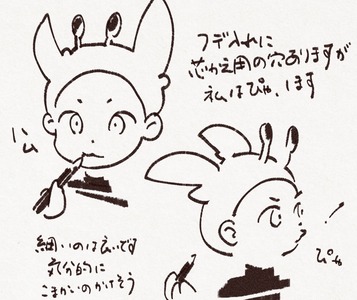 フデ入れに
芯かえ用の穴ありますが
私はぴゃ、します
ハム
!
ぴゃ
細いのは広いです
気分的に
こまかいのかけそう